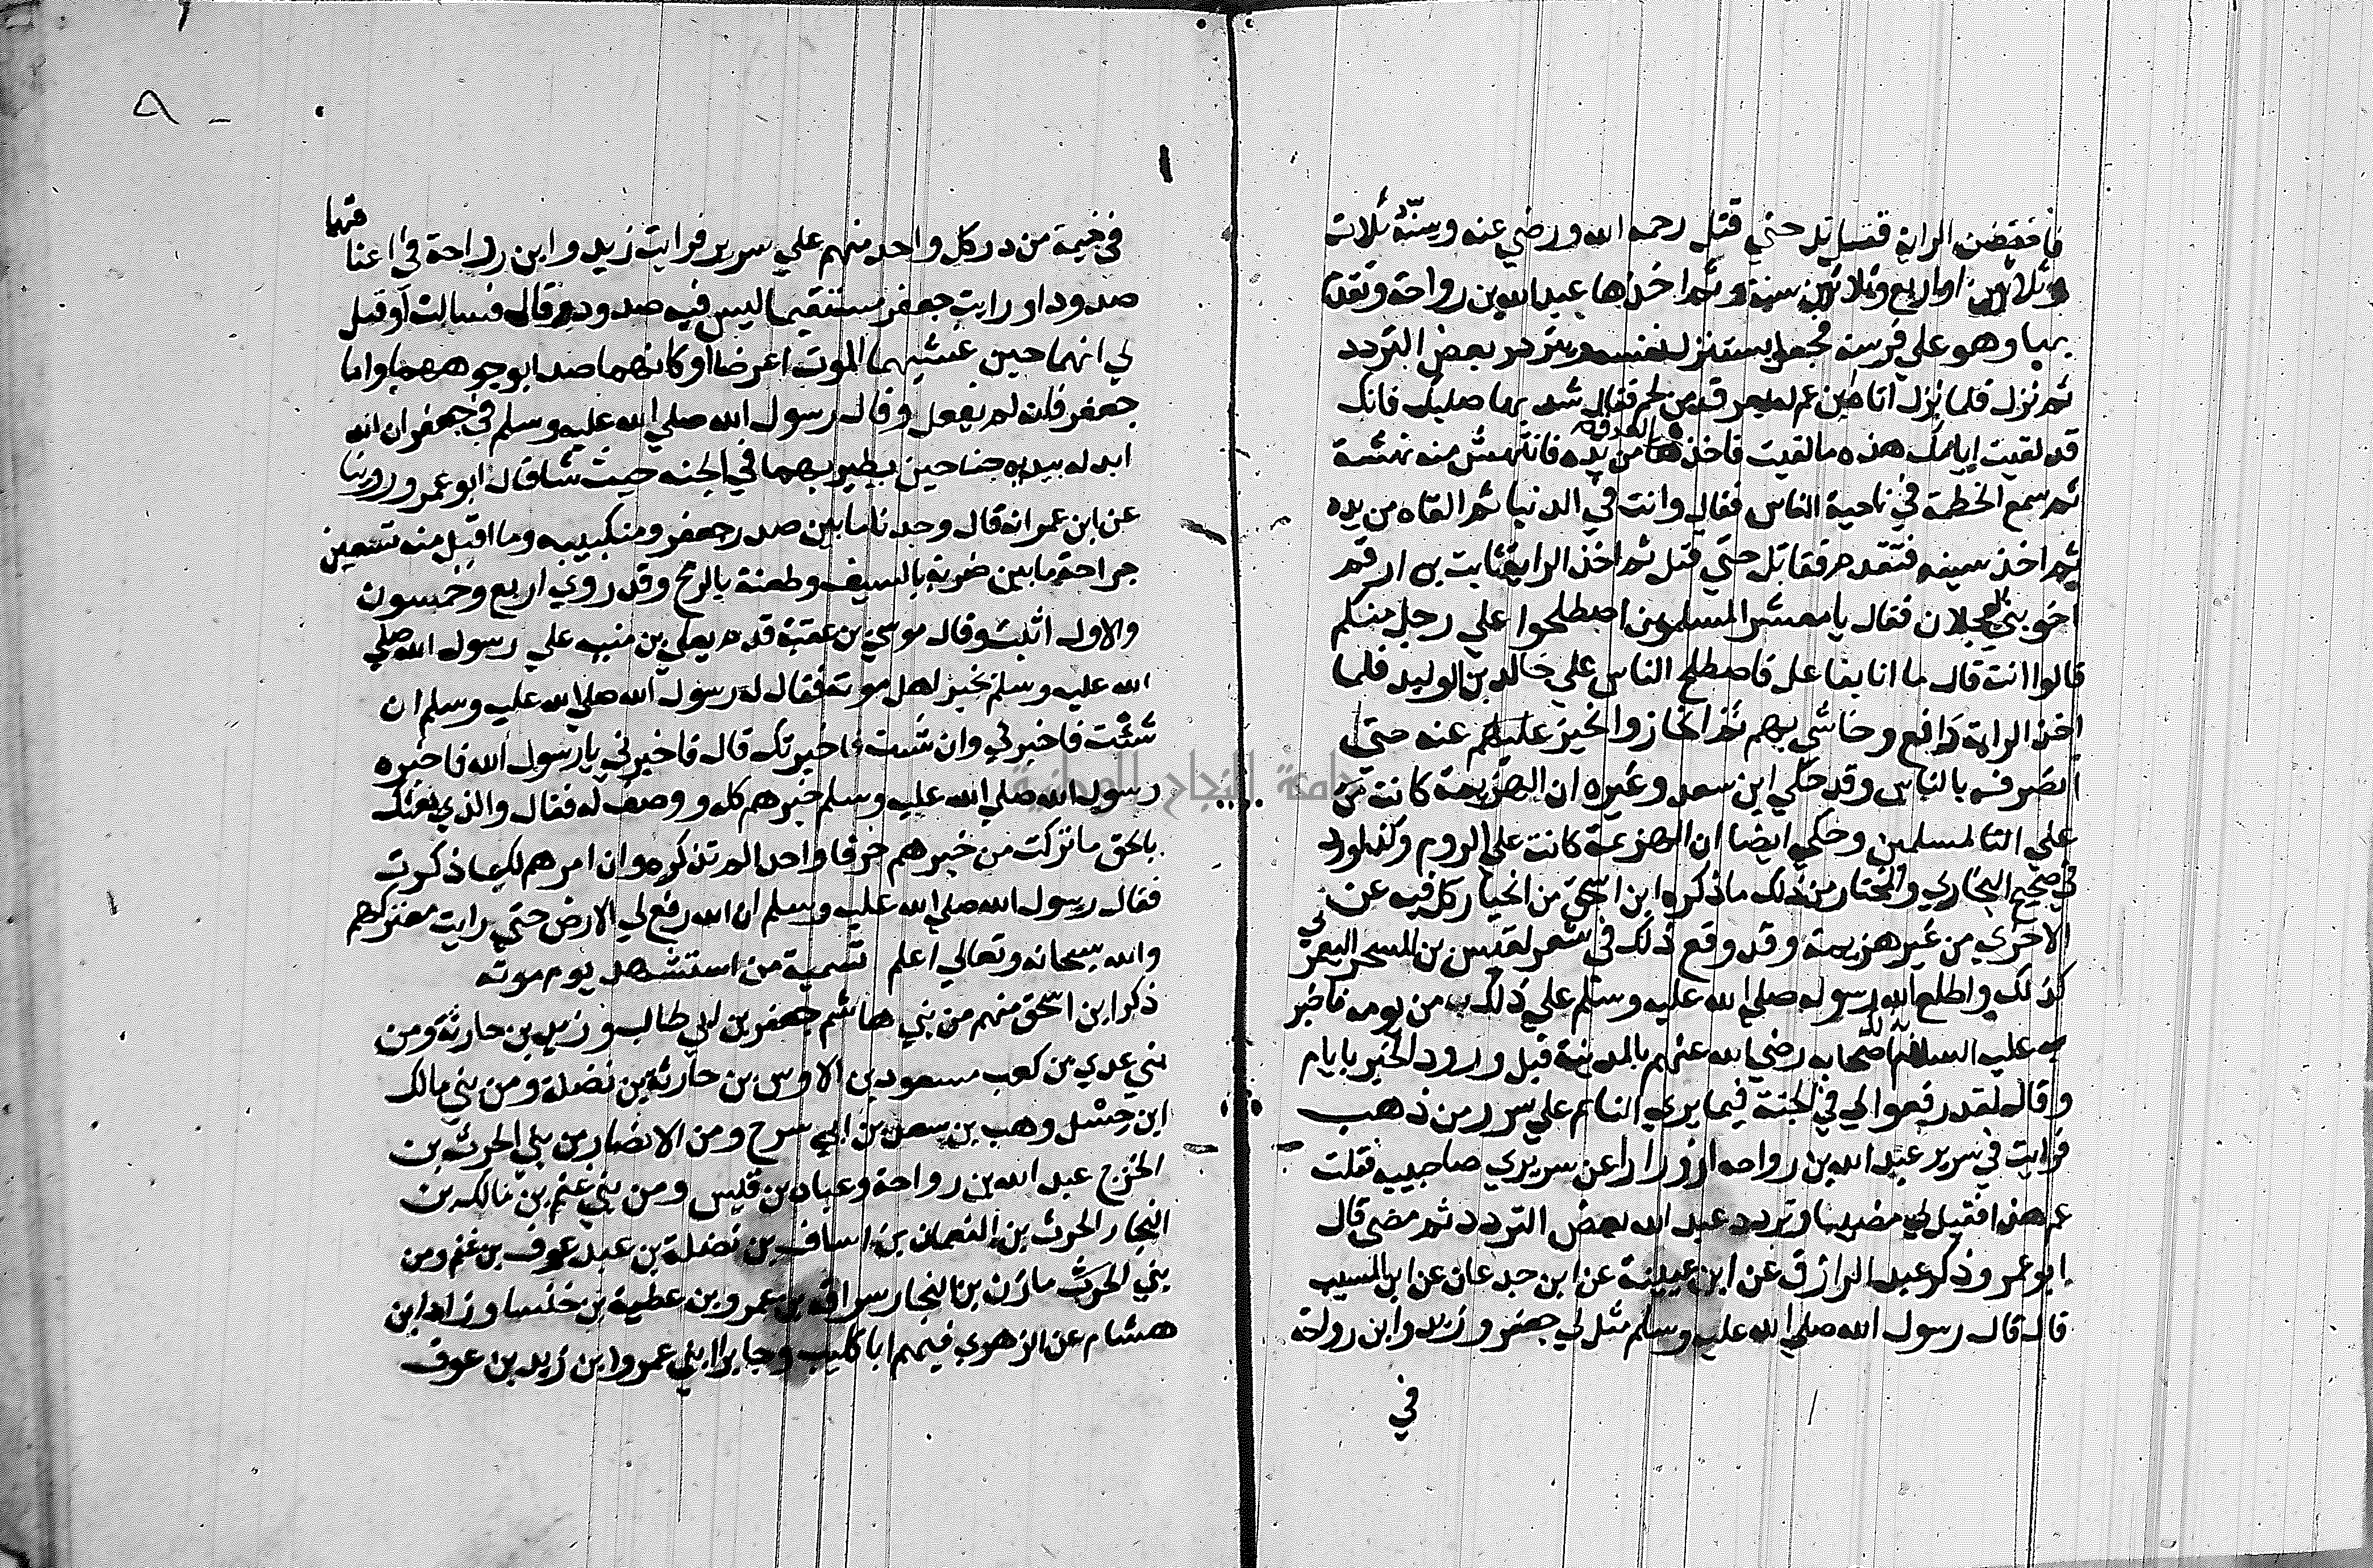 فاحتضن الراية فقاتل حتي قتل رحمه الله ورضي عنه وسنّه ثلاث
وثلاثون او اربع وثلاثون سنة و ثم اخذها عبد الله بن رواحة وتقدم
بها وهو علي فرسه فجعل يستنزل نفسه ويتردد بعض التردد
ثم نزل فلما نزل اتاه ابن عم له بعرق من لحم فقال شد بها صلبك فانك
قد لقيت ايامك هذه ما لقيت فاخذها من يده فانتهش منه نهشة
ثم سمع الحطمة في ناحية الناس فقال وانت في الدنيا ثم القاه من يده
ثم اخذ سيفه فتقدم فقاتل حتي قتل ثم اخذ الراية ثابت بن ارقم
اخو بني العجلان فقال يا معشر المسلمين اصطلحوا علي رجل منكم
قالوا انت قال ما انا بفاعل فاصطلح الناس علي خالد بن الوليد فلما
اخذ الراية دافع وخاشي بهم ثم انحاز وانحيز عنه حتي
انصرف بالناس وقد حكي ابن سعد وغيره ان الهزيمة كانت
علي المسلمين وحكي ايضا ان الهزيمة كانت علي الروم وكذلك ورد
في صحيح البخاري والمختار من ذلك ما ذكره ابن اسحق من انحياز كل فيه عن
الاخري من غير هزيمة وقد وقع ذلك في شعر لقيس بن المسحر اليعمري
كذلك واطلع الله رسوله صلي الله عليه وسلم علي ذلك من يومه فاخبر
به عليه السلام اصحابه رضي الله عنهم بالمدينة قبل ورود الخبر بايام
وقال لقد رفعوا لي في الجنة فيما يري النائم علي سرر من ذهب
فرايت في سرير عبد الله بن رواحه ازورارا عن سريري صاحبيه فقلت
عم هذا فقيل لي مضيا وتردد عبد الله بعض التردد ثم مضي قال
ابو عمر وذكر عبد الرازق عن ابن عيينة عن ابن جدعان عن ابن المسيب
قال قال رسول الله صلي الله عليه وسلم مثل لي جعفر وزيد وابن رواحة
في
في خيمة من در كل واحد منهم علي سرير فرايت زيد وابن رواحة في اعناقهما
صدودا و رايت جعفر مستقيما ليس فيه صدود قال فسالت او قيل
لي انهما حين غشيهما الموت اعرضا او كانهما صدا بوجوههما واما
جعفر فانه لم يفعل وقال رسول الله صلي الله عليه وسلم في جعفر ان الله
ابدله بيديه جناحين يطير بهما في الجنه حيث شا قال ابو عمر وروينا
عن ابن عمر انه قال وجدنا ما بين صدر جعفر ومنكبيه وما اقبل منه تسعين
جراحة ما بين ضربة بالسيف وطعنة بالرمح وقد روي اربع وخمسون
والاول اثبت وقال موسي بن عقبة قدم يعلي بن منبه علي رسول الله صلي
الله عليه وسلم بخبر اهل موته فقال له رسول الله صلي الله عليه وسلم ان
شئت فاخبرني وان شئت فاخبرتك قال فاخبرني يا رسول الله فاخبره
رسول الله صلي الله عليه وسلم خبرهم كله ووصف له فقال والذي بعثك
بالحق ما تركت من خبرهم حرفا واحدا لم تذكره وان امرهم لكما ذكرت
فقال رسول الله صلي الله عليه وسلم ان الله رفع لي الارض حتي رايت معتركهم
والله سبحانه وتعالي اعلم تسمية من استشهد يوم موته
ذكر ابن اسحق منهم من بني هاشم جعفر بن ابي طالب وزيد بن حارثة ومن
بني عدي بن كعب مسعود بن الاوس بن حارثة بن نضلة ومن بني مالك
ابن حسل وهب بن سعد بن ابي سرح ومن الانصار من بني الحرث بن
الخزرج عبد الله بن رواحة وعباد بن قيس ومن بني غنم بن مالك بن
النجار الحرث بن النعمان بن اساف بن نضلة بن عبد عوف بن غنم ومن
بني الحرث مازن بن النجار سراقة بن عمرو بن عطية بن خنسا وزاد ابن
هشام عن الزهري فيهم ابا كليب وجابرا ابني عمرو ابن زيد بن عوف
جامعة النجاح الوطنية